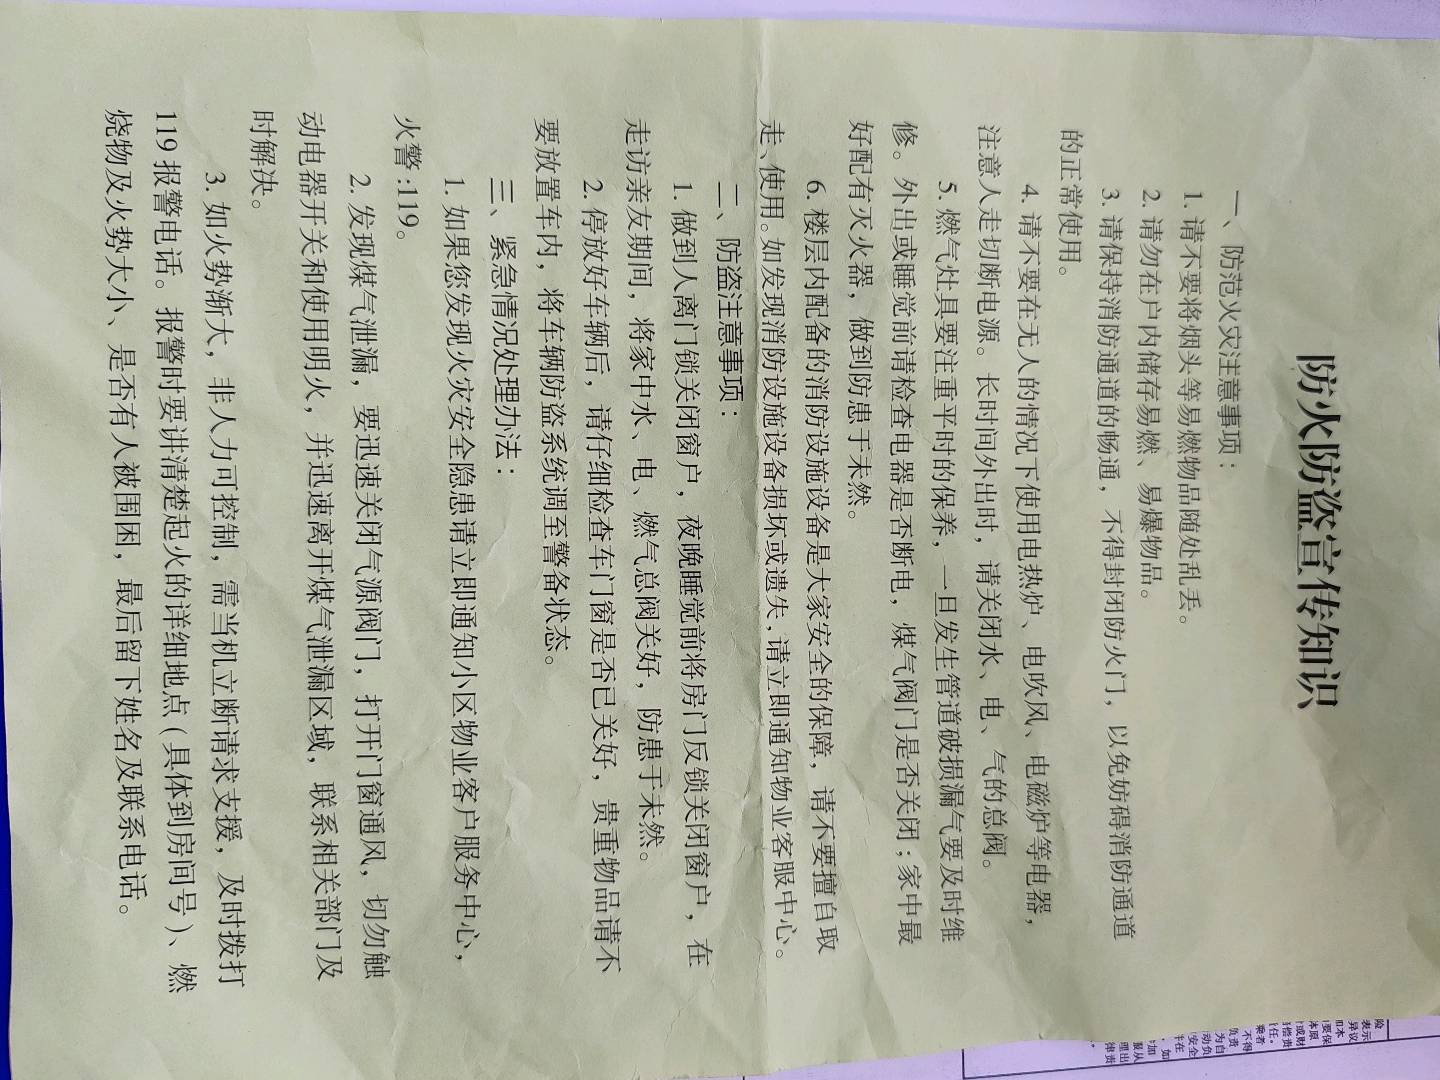 防火防盗宣传知识
一、防范火灾注意事项：
1. 请不要将烟头等易燃物品随处乱丢。
2. 请勿在户内储存易燃、易爆物品。
3. 请保持消防通道的畅通，不得封闭防火门，以免妨碍消防通道
的正常使用。
4. 请不要在无人的情况下使用电热炉、电吹风、电磁炉等电器，
注意人走切断电源。长时间外出时，请关闭水、电、气的总阀。
5. 燃气灶具要注重平时的保养，一旦发生管道破损漏气要及时维
修。外出或睡觉前请检查电器是否断电，煤气阀门是否关闭；家中最
好配有灭火器，做到防患于未然。
6. 楼层内配备的消防设施设备是大家安全的保障，请不要擅自取
走、使用。如发现消防设施设备损坏或遗失，请立即通知物业客服中心。
二、防盗注意事项：
1. 做到人离门锁关闭窗户，夜晚睡觉前将房门反锁关闭窗户，在
走访亲友期间，将家中水、电、燃气总阀关好，防患于未然。
2. 停放好车辆后，请仔细检查车门窗是否已关好，贵重物品请不
要放置车内，将车辆防盗系统调至警备状态。
三、紧急情况处理办法：
1. 如果您发现火灾安全隐患请立即通知小区物业客户服务中心，
火警:119。
2. 发现煤气泄漏，要迅速关闭气源阀门，打开门窗通风，切勿触
动电器开关和使用明火，并迅速离开煤气泄漏区域，联系相关部门及
时解决。
3. 如火势渐大，非人力可控制，需当机立断请求支援，及时拨打
119 报警电话。报警时要讲清楚起火的详细地点（具体到房间号）、燃
烧物及火势大小、是否有人被围困，最后留下姓名及联系电话。